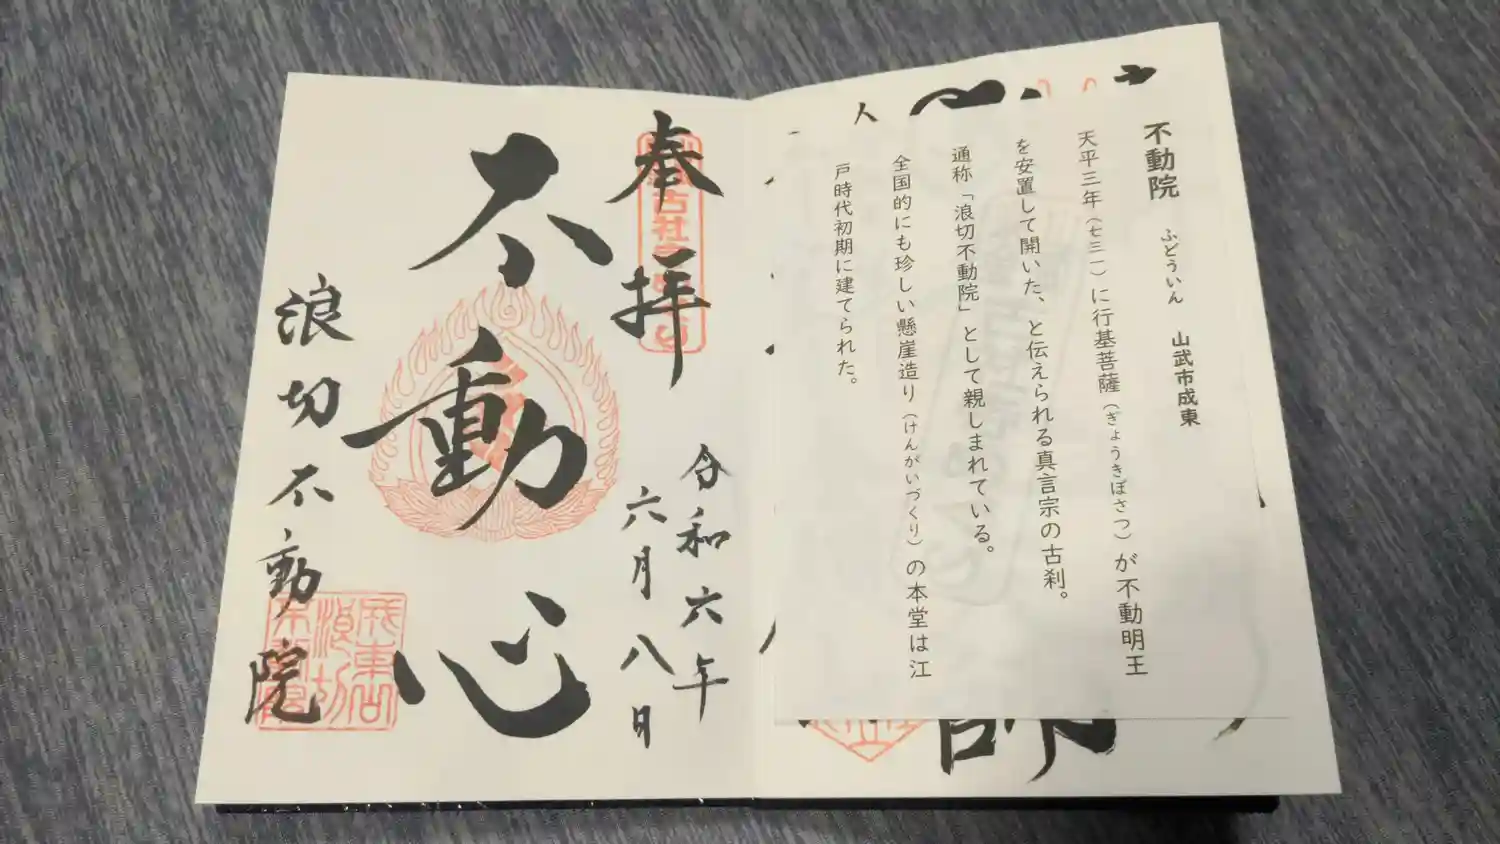 不動院 ふどういん 山武市成東
天平三年（七三一）に行基菩薩（ぎょうきぼさつ）が不動明王
を安置して開いた、と伝えられる真言宗の古刹。
通称「浪切不動院」として親しまれている。
全国的にも珍しい懸崖造り（けんがいづくり）の本堂は江
戸時代初期に建てられた。
人
師
奉拝
古社
令和六年
六月八日
不動心
浪切不動院